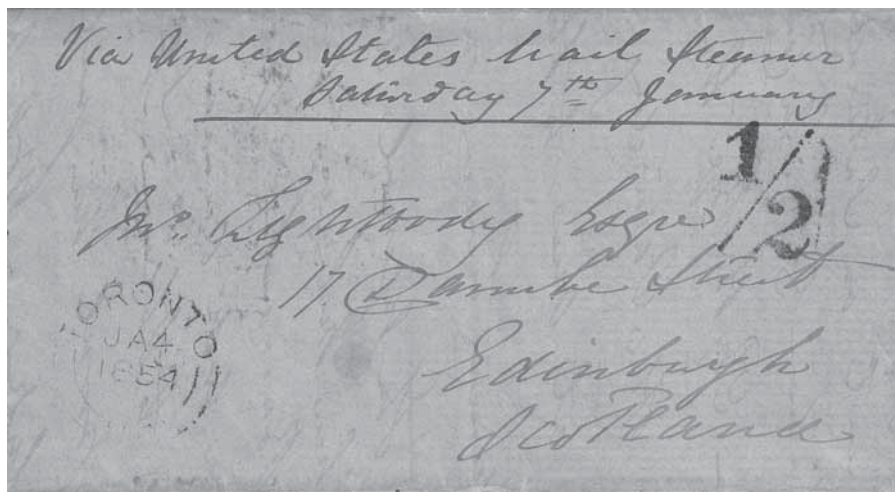 Via United States Mail Steamer
Saturday 7th January
1/2
Jno. Lightbody Esqre
17. Danube Street
Edinburgh
Scotland
TORONTO
JA 4
1854